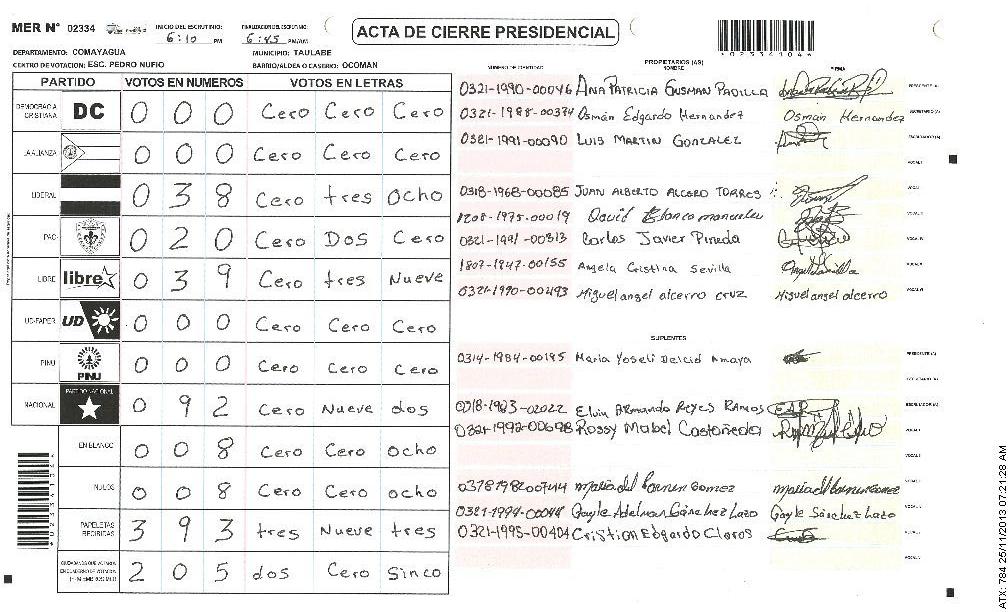 MER N° 02334
INICIO DEL ESCRUTINIO: 6:10 PM
FINALIZACION DEL ESCRUTINIO: 6:45 PM/AM
ACTA DE CIERRE PRESIDENCIAL
* 0 2 3 3 4 1 0 4 *
DEPARTAMENTO: COMAYAGUA
MUNICIPIO: TAULABE
CENTRO DE VOTACION: ESC. PEDRO NUFIO
BARRIO/ALDEA O CASERIO: OCOMAN
NUMERO DE IDENTIDAD
PROPIETARIOS (AS)
NOMBRE
FIRMA
PARTIDO VOTOS EN NUMEROS VOTOS EN LETRAS
DEMOCRACIA CRISTIANA DC 0 0 0 Cero Cero Cero
LA ALIANZA 0 0 0 Cero Cero Cero
LIBERAL 0 3 8 Cero tres ocho
PAC 0 2 0 Cero Dos Cero
LIBRE libre 0 3 9 Cero tres Nueve
UD-FAPER UD 0 0 0 Cero Cero Cero
PINU PINU 0 0 0 Cero Cero Cero
NACIONAL PARTIDO NACIONAL 0 9 2 Cero Nueve dos
EN BLANCO 0 0 8 Cero Cero ocho
NULOS 0 0 8 Cero Cero ocho
PAPELETAS RECIBIDAS 3 9 3 tres Nueve tres
CIUDADANOS QUE VOTARON EN CUADERNO DE VOTACION (+ MIEMBROS MER) 2 0 5 dos Cero Sinco
0321-1990-00046 ANA PATRICIA GUSMAN PADILLA PRESIDENTE (A)
0321-1988-00374 Osmán Edgardo Hernandez Osman Hernandez SECRETARIO (A)
0321-1991-00090 LUIS MARTIN GONZALEZ ESCRUTADOR (A)
VOCAL I
0318-1968-00085 JUAN ALBERTO ALCERO TORRES
1208-1975-00019 David Blanco
0321-1991-00313 Carlos Javier Pineda
1807-1947-00155 Angela Cristina Sevilla
0321-1990-00493 Miguel angel alcerro cruz Miguel angel alcerro
SUPLENTES
0314-1984-00195 Maria Yoseli Delcid Amaya PRESIDENTE (A)
SECRETARIO (A)
0318-1983-02022 Elvin ARmando Reyes Ramos EAR ESCRUTADOR (A)
0321-1992-00698 Rossy Mabel Castañeda
Maria del Carmen Gomez Maria del Carmen Gomez
Gayle Sánchez Lazo
0321-1995-00404 Cristian Edgardo Claros
* 0 2 3 3 4 1 0 4 *
ATX: 784 25/11/2013 07:21:28 AM